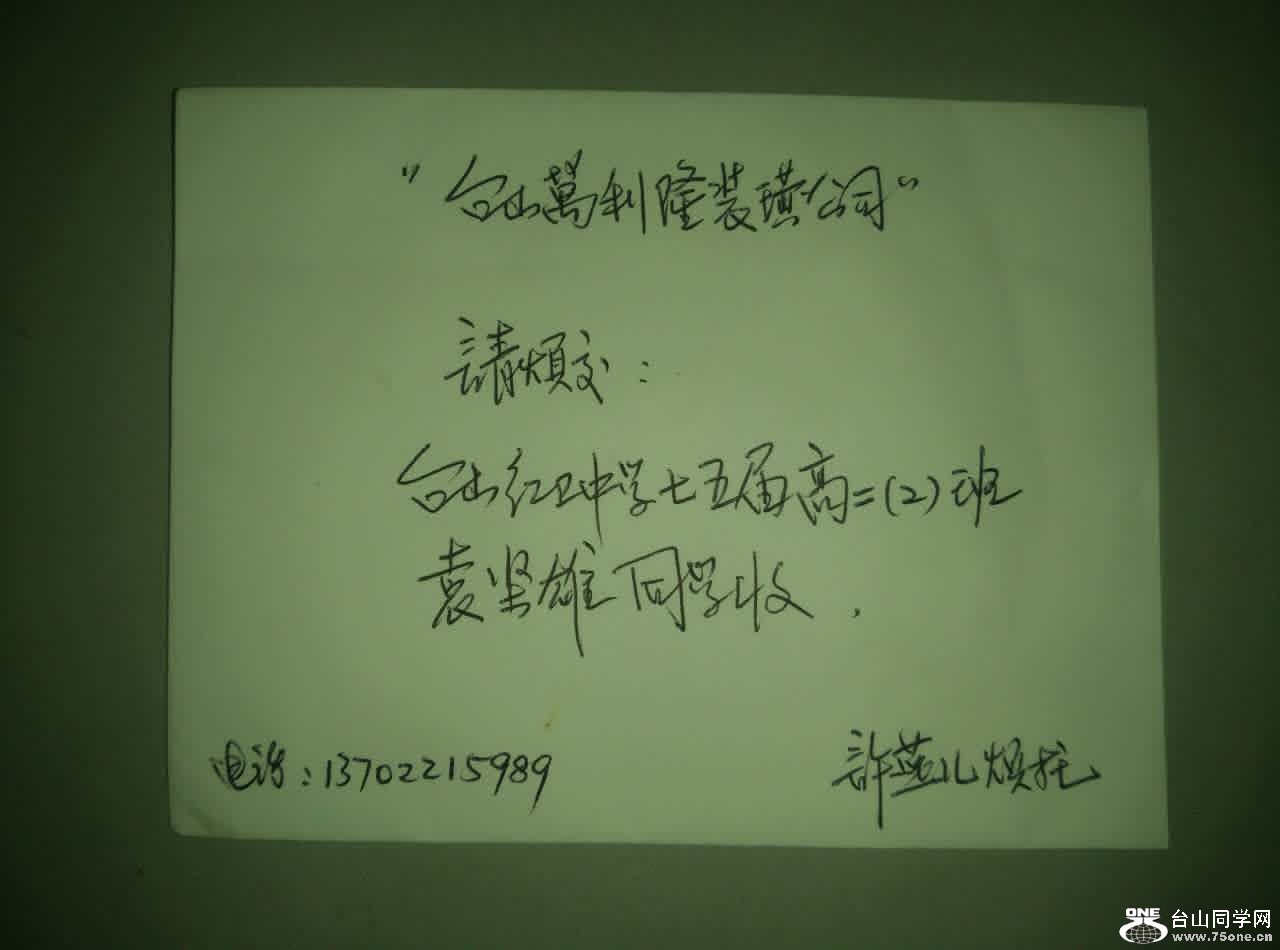 "台山萬利隆装璜公司"
請煩交:
台山红卫中学七五届高二(2)班
袁坚雄同学收.
电话:13702215989
許燕儿煩托
ONE
台山同学网
www.75one.cn